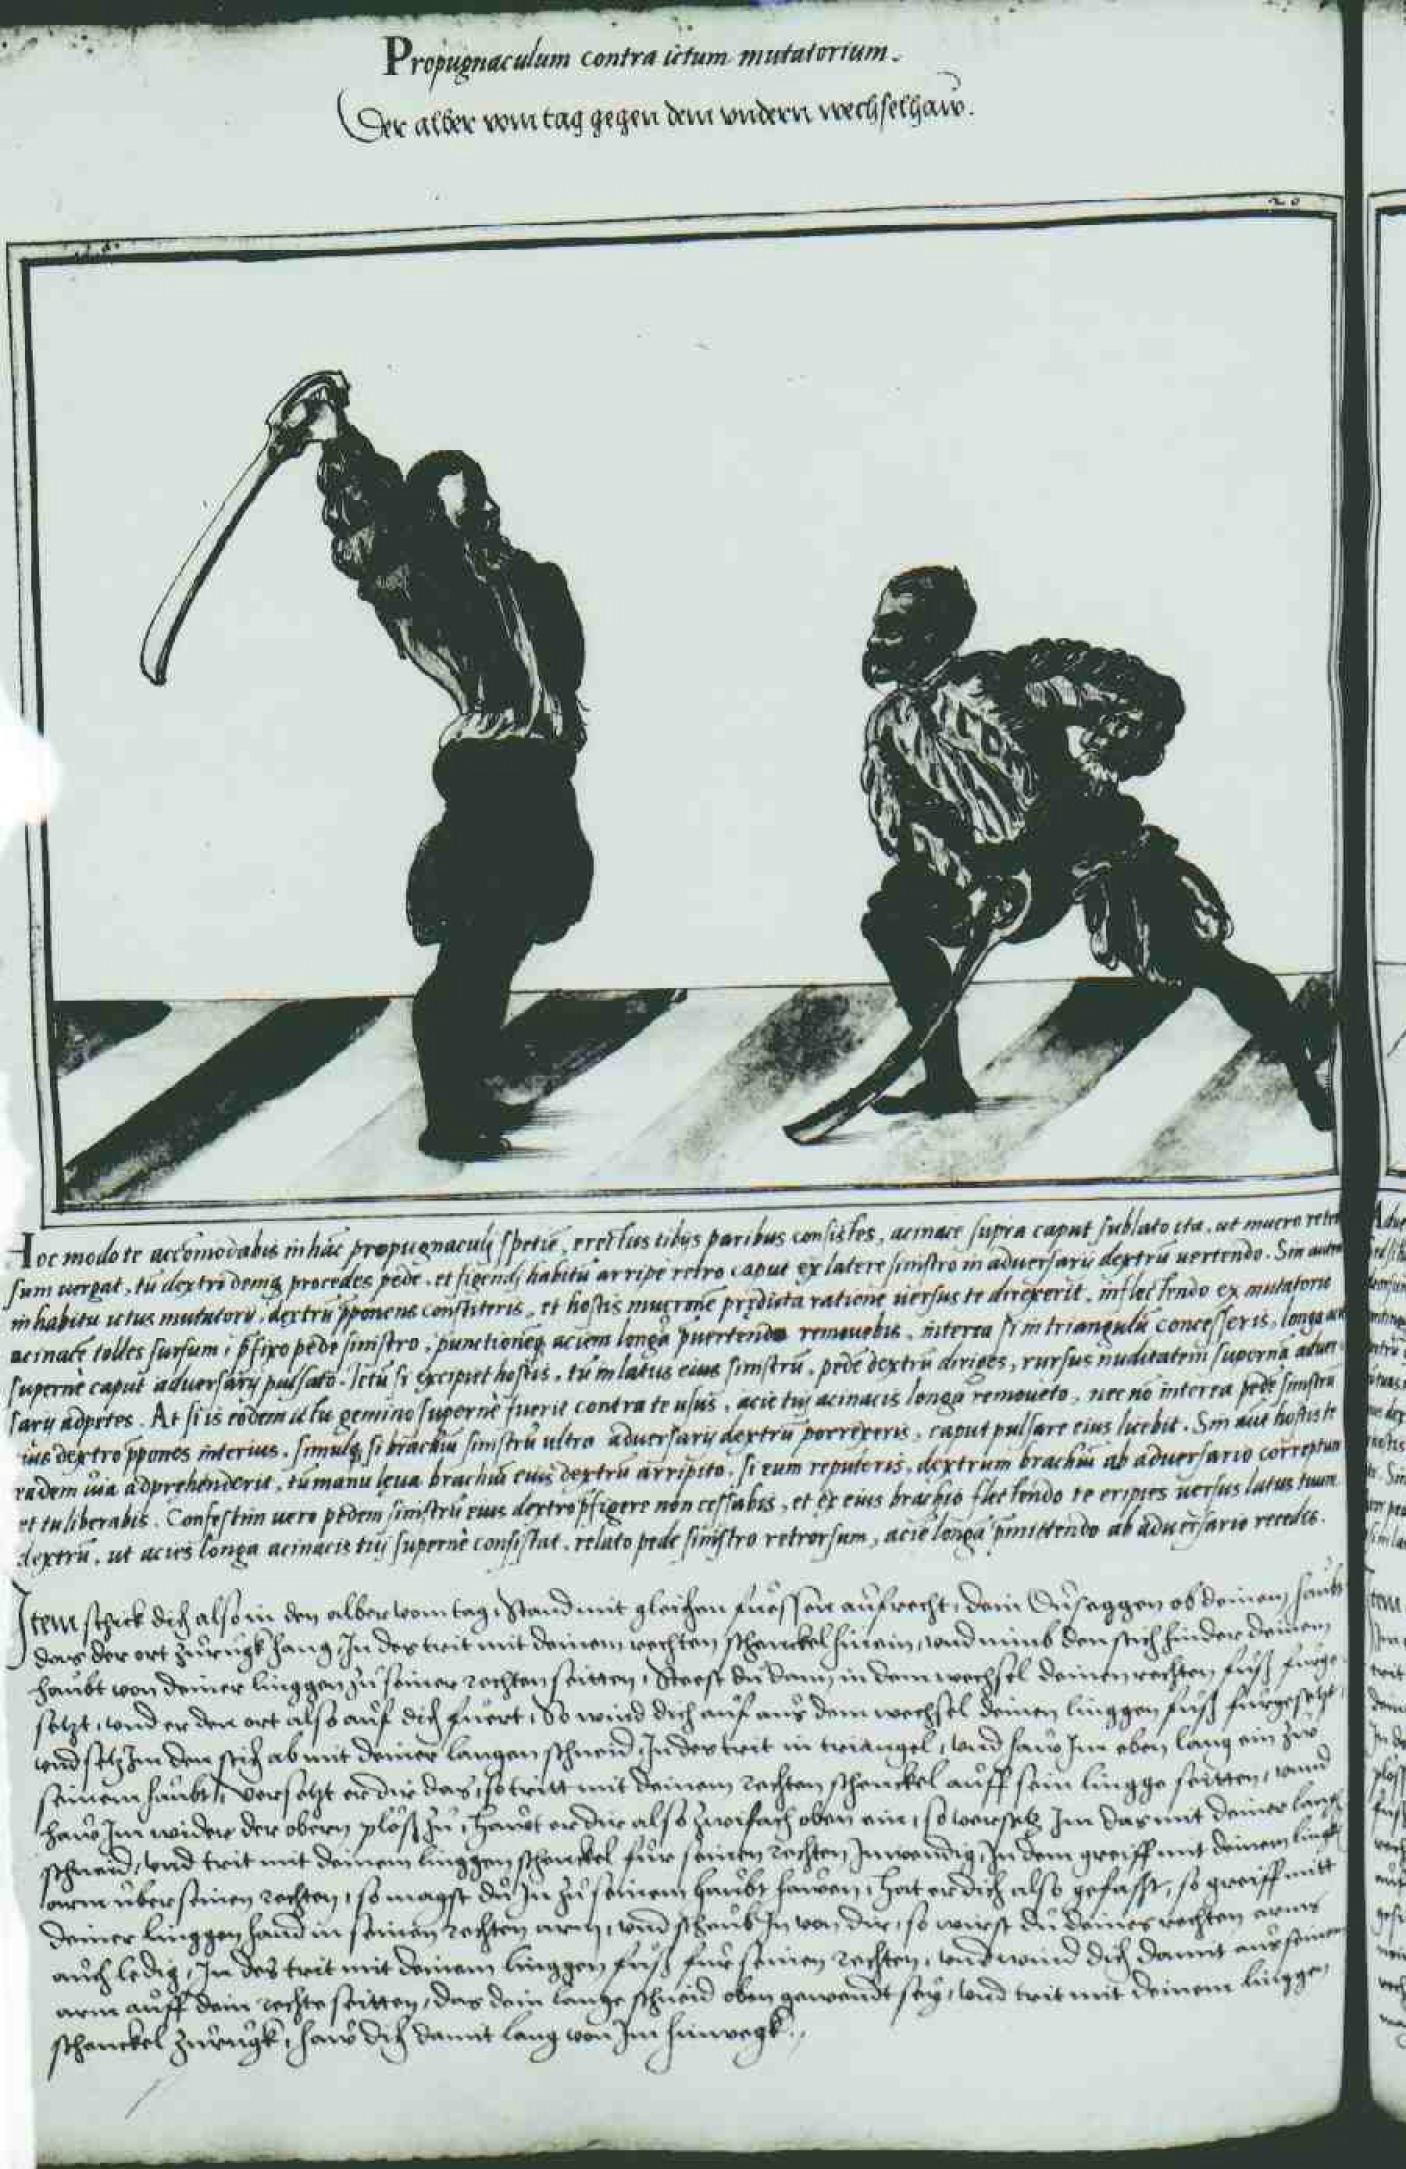 Propugnaculum contra ictum mutatorium.
Der alber vom tag gegen dem undern wechselhaw.
20
Hoc modo te accomodabis in hãc propugnaculj spetiẽ, erectus tibijs paribus consistes, acinace supra caput sublato ita, ut mucro retror
sum vergat, tu dextro deinq, procedes pede, et figendj habitũ arripe retro caput ex latere sinistro in adversarij dextrũ vertendo. Sin autem
in habitu ictus mutatorij, dextrũ p̃ponens constiteris, et hostis mucronẽ prędicta ratione versus te direxerit, inflectendo ex mutatorio
acinacẽ tolles sursum, p̃fixo pede sinistro, punctionẽq aciem longã p̃vertendo removebis, interea si in triangulũ concesseris, longa acie
supernè caput adversarij pulsato. Ictũ si excipiet hostis, tu in latus eius sinistrũ, pedẽ dextrũ diriges, rursus nuditatem supernã adver
sarij adpetes. At si is eodem ictu gemino supernè fuerit contra te usus, acie tuj acinacis longa removeto, nec nõ interea pedẽ sinistrũ
eius dextro p̃pones interius, simulq, si brachiũ sinistrũ ultra adversarij dextrũ porrexeris, caput pulsare eius licebit. Sin aũt hostis te
eadem via adprehenderit, tu manu leva brachiũ eius dextrũ arripito, si eum repuleris, dextrum brachiũ ab adversario correptum
et tu liberabis. Confestim vero pedem sinistrũ eius dextro p̃figere non cessabis, et ex eius brachio flectendo te eripies versus latus tuum
dextrũ, ut acies longa acinacis tuj supernè consistat, relato pede sinistro retrorsum, aciẽ longã p̃mittendo ab adversario recedes.
Item schick dich also in den alber vom tag, stand mit gleichen fuẽssen aufrecht, dein Dusaggen ob deinem haubt
das der ort zurugk hang, In des trit mit deinem rechten schenckel hinein, und nimb den stich hinder deinem
haubt von deiner linggen zu seiner rechten seitten, Steest du dann in dem wechsel deinen rechten fuß fürge
setzt, und er den ort also auf dich fuert, so wind dich auf aus dem wechsel deinen linggen fuß fürgesetzt,
und setz Im den stich ab mit deiner langen schneid, In des trit in triangel, und haw Im oben lang ein zu
seinem haubt, versetzt er dir das, so tritt mit deinem rechten schenckel auff sein lingge seitten, unnd
haw Im wider der obern plöß zu, hawt er dir also zwifach oben ein, so versetz Im das mit deiner langen
schneid, und trit mit deinem linggen schenckel für seinen rechten Inwendig, In dem greiff mit deinem linggen
arm über seinen rechten, so magst du In zu seinem haubt hawen, hat er dich also gefasst, so greiff mitt
deiner linggen hand in seinen rechten arm, und scheub In von dir, so wirst du deines rechten arms
auch ledig, In des trit mit deinem linggen fuß für seinen rechten, und wind dich damit aus seinem
arm auff dein rechte seitten, das dein lange schneid oben gewendt sey, und trit mit deinem linggen
schenckel zurugk, haw dich damit lang von Im hinwegk.